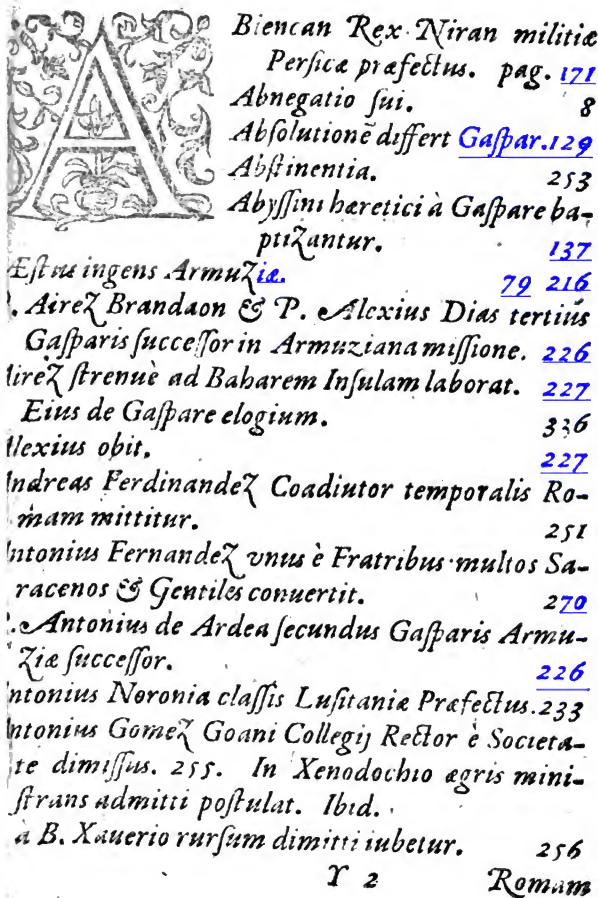 ABiencan Rex Niran militiæ
Persicæ præfectus. pag. 171
Abnegatio sui. 8
Absolutionẽ differt Gaspar. 129
Abstinentia. 253
Abyssini hæretici à Gaspare ba-
ptizantur. 137
Æstus ingens Armuziæ. 79 216
P. Airez Brandaon & P. Alexius Dias tertius
Gasparis successor in Armuziana missione. 226
Airez strenuè ad Baharem Insulam laborat. 227
Eius de Gaspare elogium. 336
Alexius obit. 227
Andreas Ferdinandez Coadiutor temporalis Ro-
mam mittitur. 251
Antonius Fernandez vnus è Fratribus multos Sa-
racenos & Gentiles conuertit. 270
P. Antonius de Ardea secundus Gasparis Armu-
ziæ successor. 226
Antonius Noronia classis Lusitaniæ Præfectus. 233
Antonius Gomez Goani Collegij Rector è Societa-
te dimissus. 255. In Xenodochio ægris mini-
strans admitti postulat. Ibid.
à B. Xauerio rursum dimitti iubetur. 256
Y 2 Romam